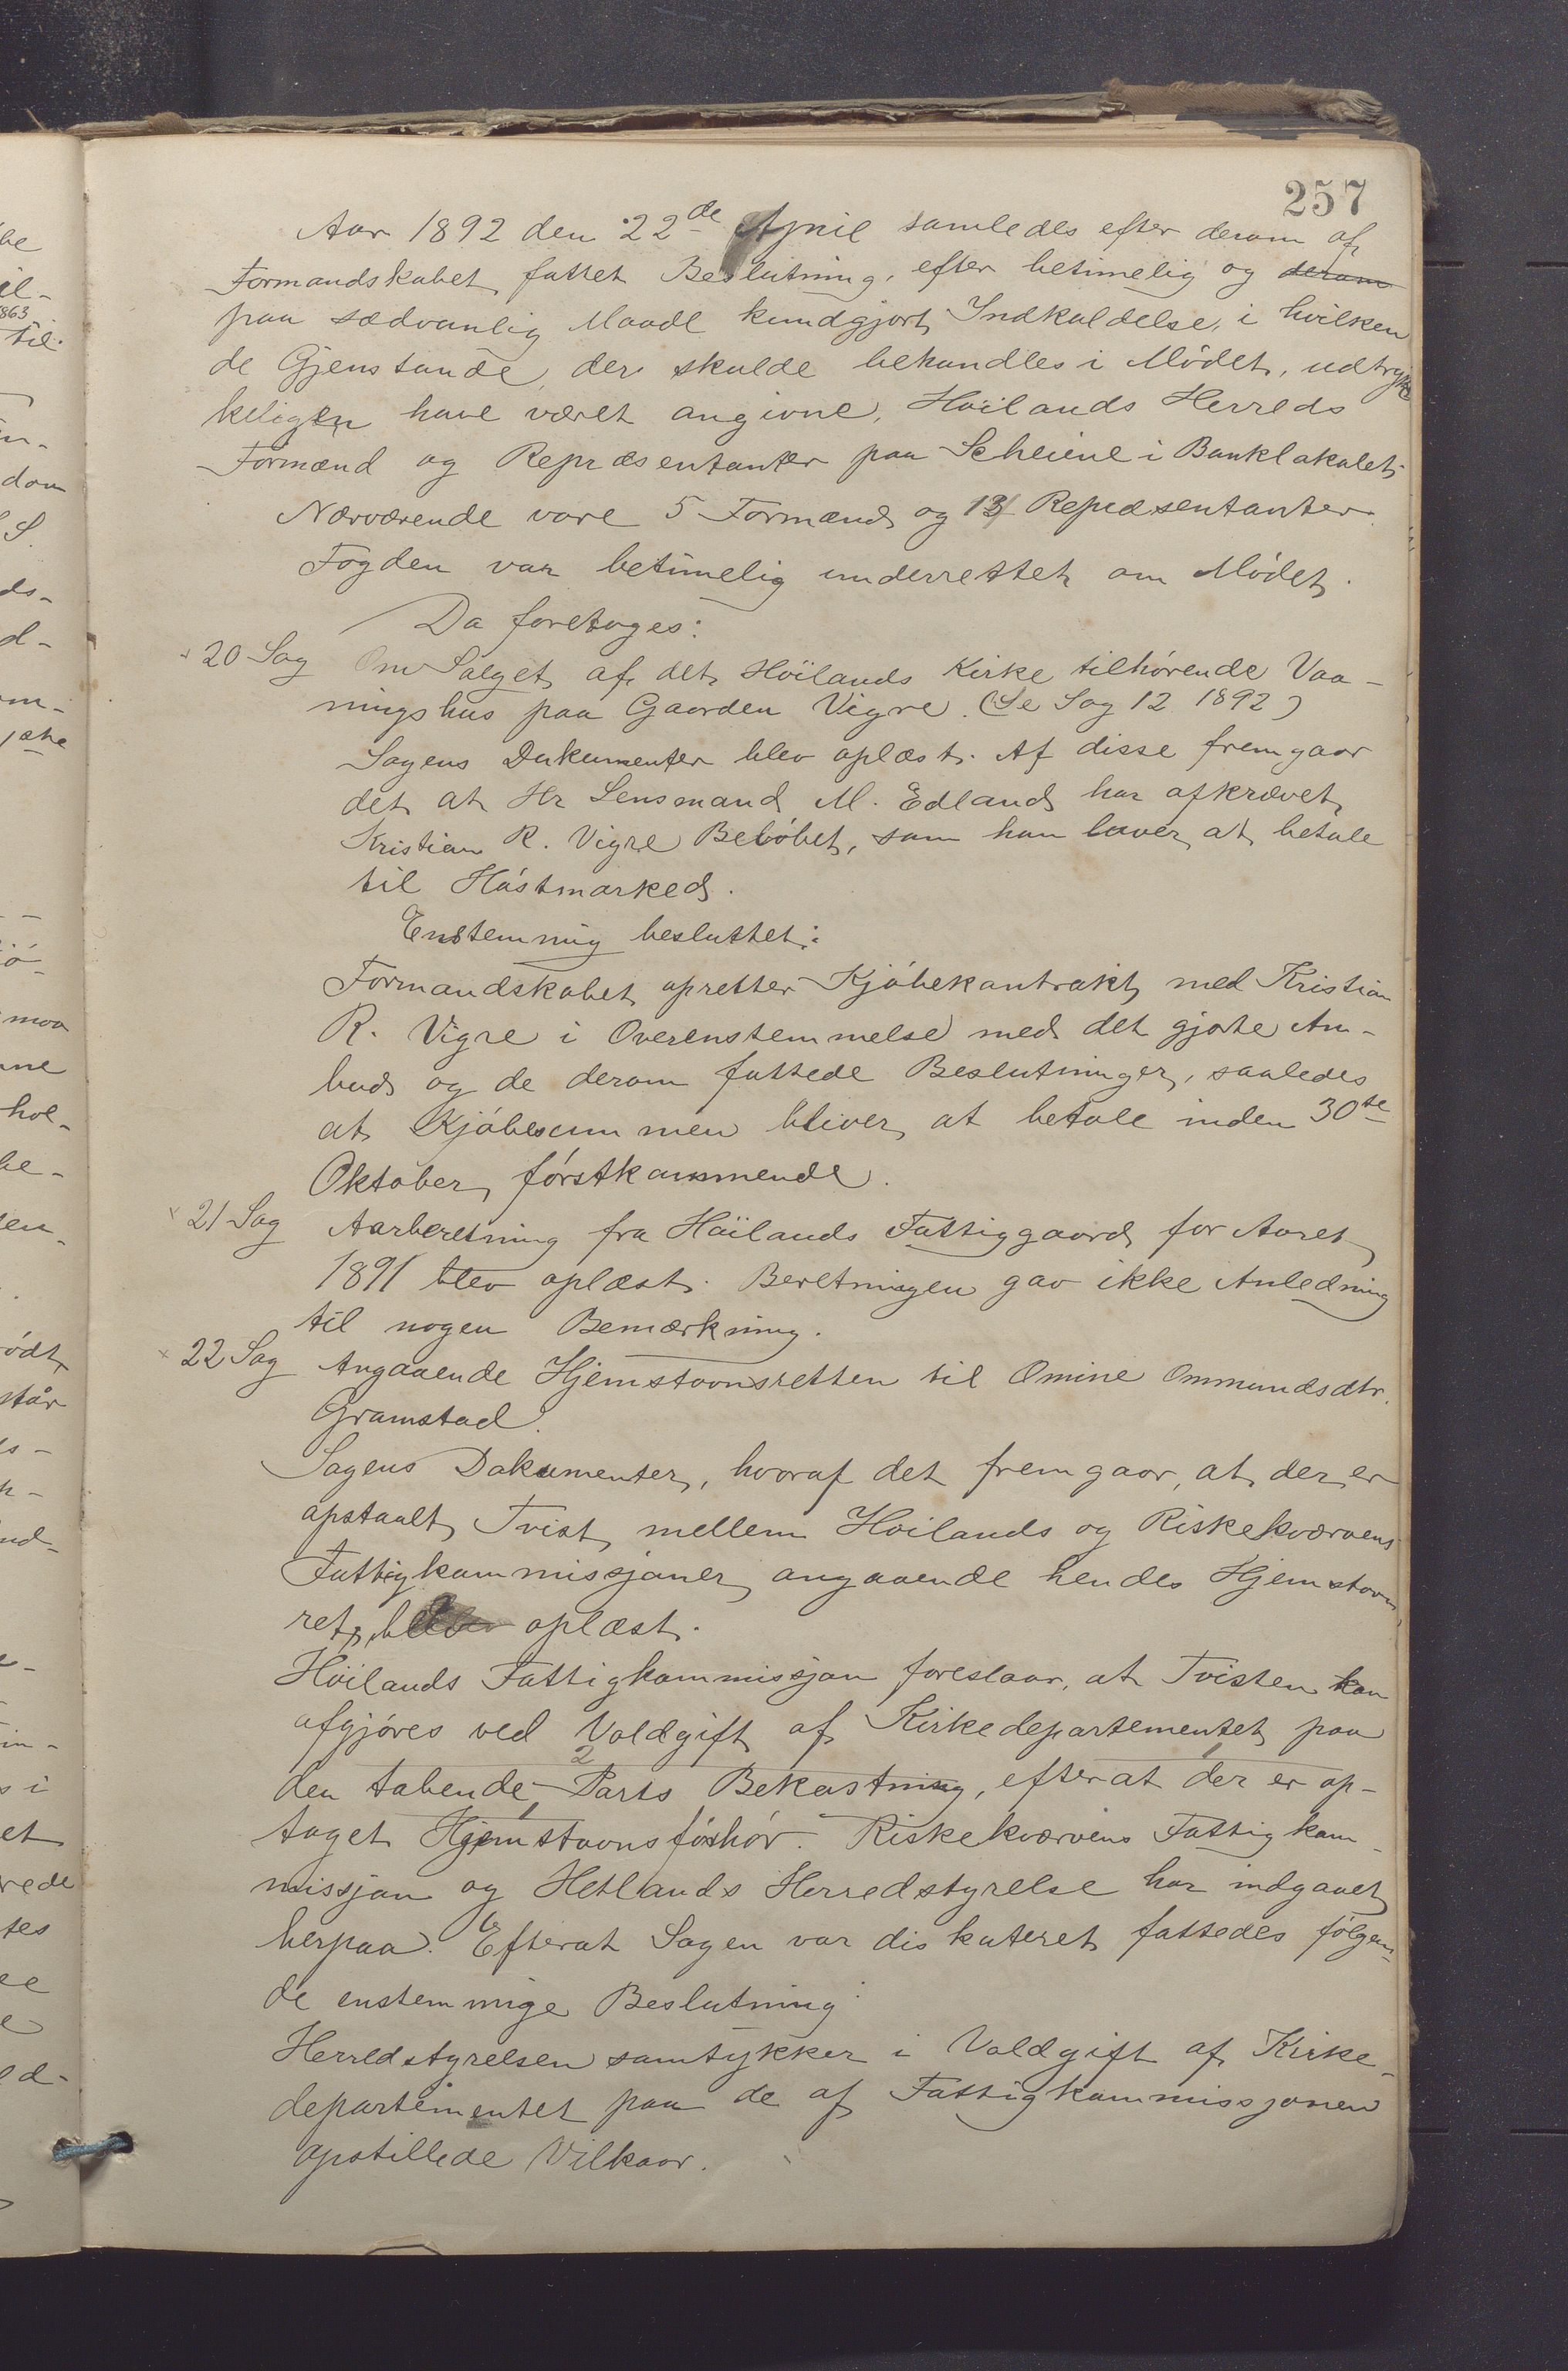 257
Aar 1892 den 22de April samledes efter derom af
Formandskabet fattet Beslutning, efter betimelig og derom
paa sædvanlig Maade kundgjort Indkaldelse, i hvilken
de Gjenstande, der skulde behandles i Mödet, udtryk
keligen have været angivne, Höilands Herreds
Formænd og Repræsentanter paa Scheiene i Banklokalet.
Nærværende vare 5 Formænd og 13 Repræsentanter.
Fogden var betimelig underrettet om Mödet.
Da foretoges:
20 Sag Om Salget af det Höilands Kirke tilhörende Vaa-
ningshus paa Gaarden Vigre. (Se Sag 12 1892)
Sagens Dokumenter blev oplæst. Af disse fremgaar
det at Hr Lensmand M. Edland har afkrævet
Kristian R. Vigre Belöbet, som han lover at betale
til Höstmarked.
Enstemmig besluttet:
Formandskabet opretter Kjöbekontrakt med Kristian
R. Vigre i Overenstemmelse med det gjorte An-
bud og de derom fattede Beslutninger, saaledes
at Kjöbesummen bliver at betale inden 30te
Oktober förstkommende.
21 Sag Aarberetning fra Höilands Fattiggaard for Aaret
1891 blev oplæst. Beretningen gav ikke Anledning
til nogen Bemærkning.
22 Sag Angaaende Hjemstavnsretten til Omine Ommundsdtr.
Gramstad.
Sagens Dokumenter, hvoraf det fremgaar, at der er
opstaalt Tvist mellem Höilands og Riskekværvens
Fattigkommissjoner angaaende hendes Hjemstavns
ret, blev oplæst.
Höilands Fattigkommissjon foreslaar, at Tvisten kan
afgjöres ved Voldgift af Kirkedepartementet paa
den tabende Parts Bekostning, efterat der er op-
taget Hjemstavnsforhör. Riskekværvens Fattigkom
missjon og Hetlands Herredstyrelse har indgaaet
herpaa. Efterat Sagen var diskuteret fattedes fölgen-
de enstemmige Beslutning:
Herredstyrelsen samtykker i Voldgift af Kirke-
departementet paa de af Fattigkommissjonen
opstillede Vilkaar.